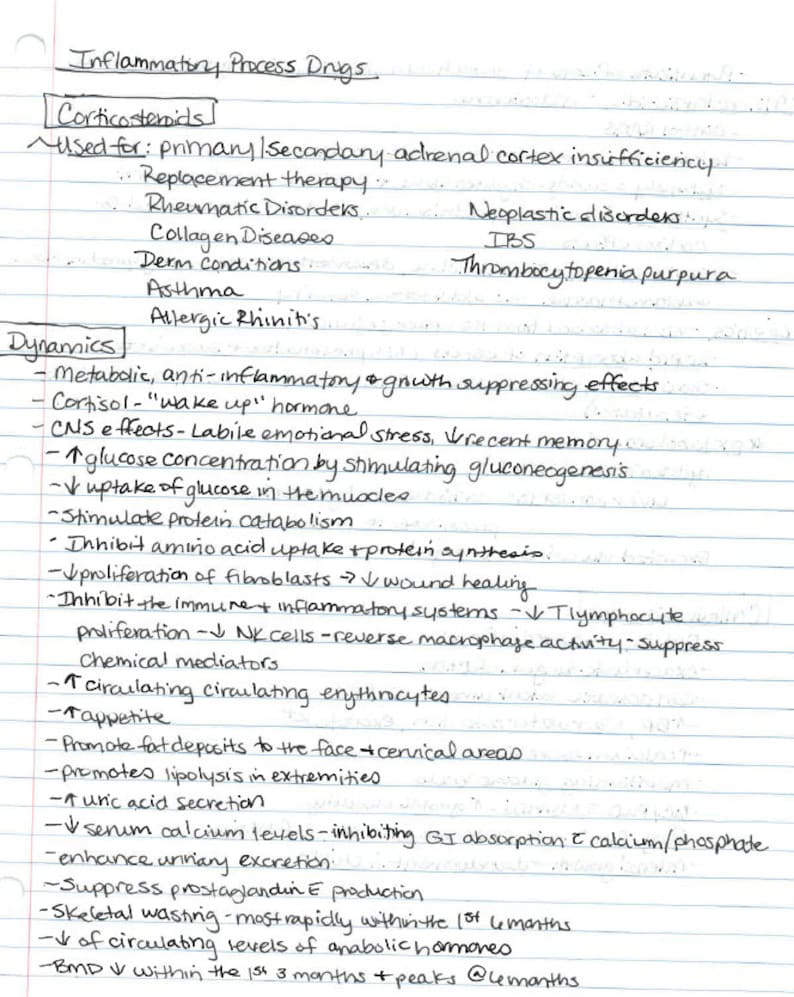 Inflammatory Process Drugs
Corticosteroids
~Used for: primary/secondary adrenal cortex insufficiency
Replacement therapy
Rheumatic Disorders Neoplastic disorders
Collagen Diseases IBS
Derm Conditions Thrombocytopenia purpura
Asthma
Allergic Rhinitis
Dynamics
- Metabolic, anti-inflammatory & growth suppressing effects
- Cortisol - "wake up" hormone
- CNS effects - Labile emotional stress, ↓ recent memory
- ↑ glucose concentration by stimulating gluconeogenesis
- ↓ uptake of glucose in the muscles
- Stimulate protein catabolism
- Inhibit amino acid uptake + protein synthesis
- ↓ proliferation of fibroblasts → ↓ wound healing
- Inhibit the immune + inflammatory systems - ↓ T lymphocyte
proliferation - ↓ NK cells - reverse macrophage activity - suppress
chemical mediators
- ↑ circulating circulating erythrocytes
- ↑ appetite
- Promote fat deposits to the face + cervical areas
- promotes lipolysis in extremities
- ↑ uric acid secretion
- ↓ serum calcium levels - inhibiting GI absorption c̄ calcium/phosphate
- enhance urinary excretion
- Suppress prostaglandin E production
- Skeletal wasting - most rapidly within the 1st 6 months
- ↓ of circulating levels of anabolic hormones
- BMD ↓ within the 1st 3 months + peaks @ 6 months